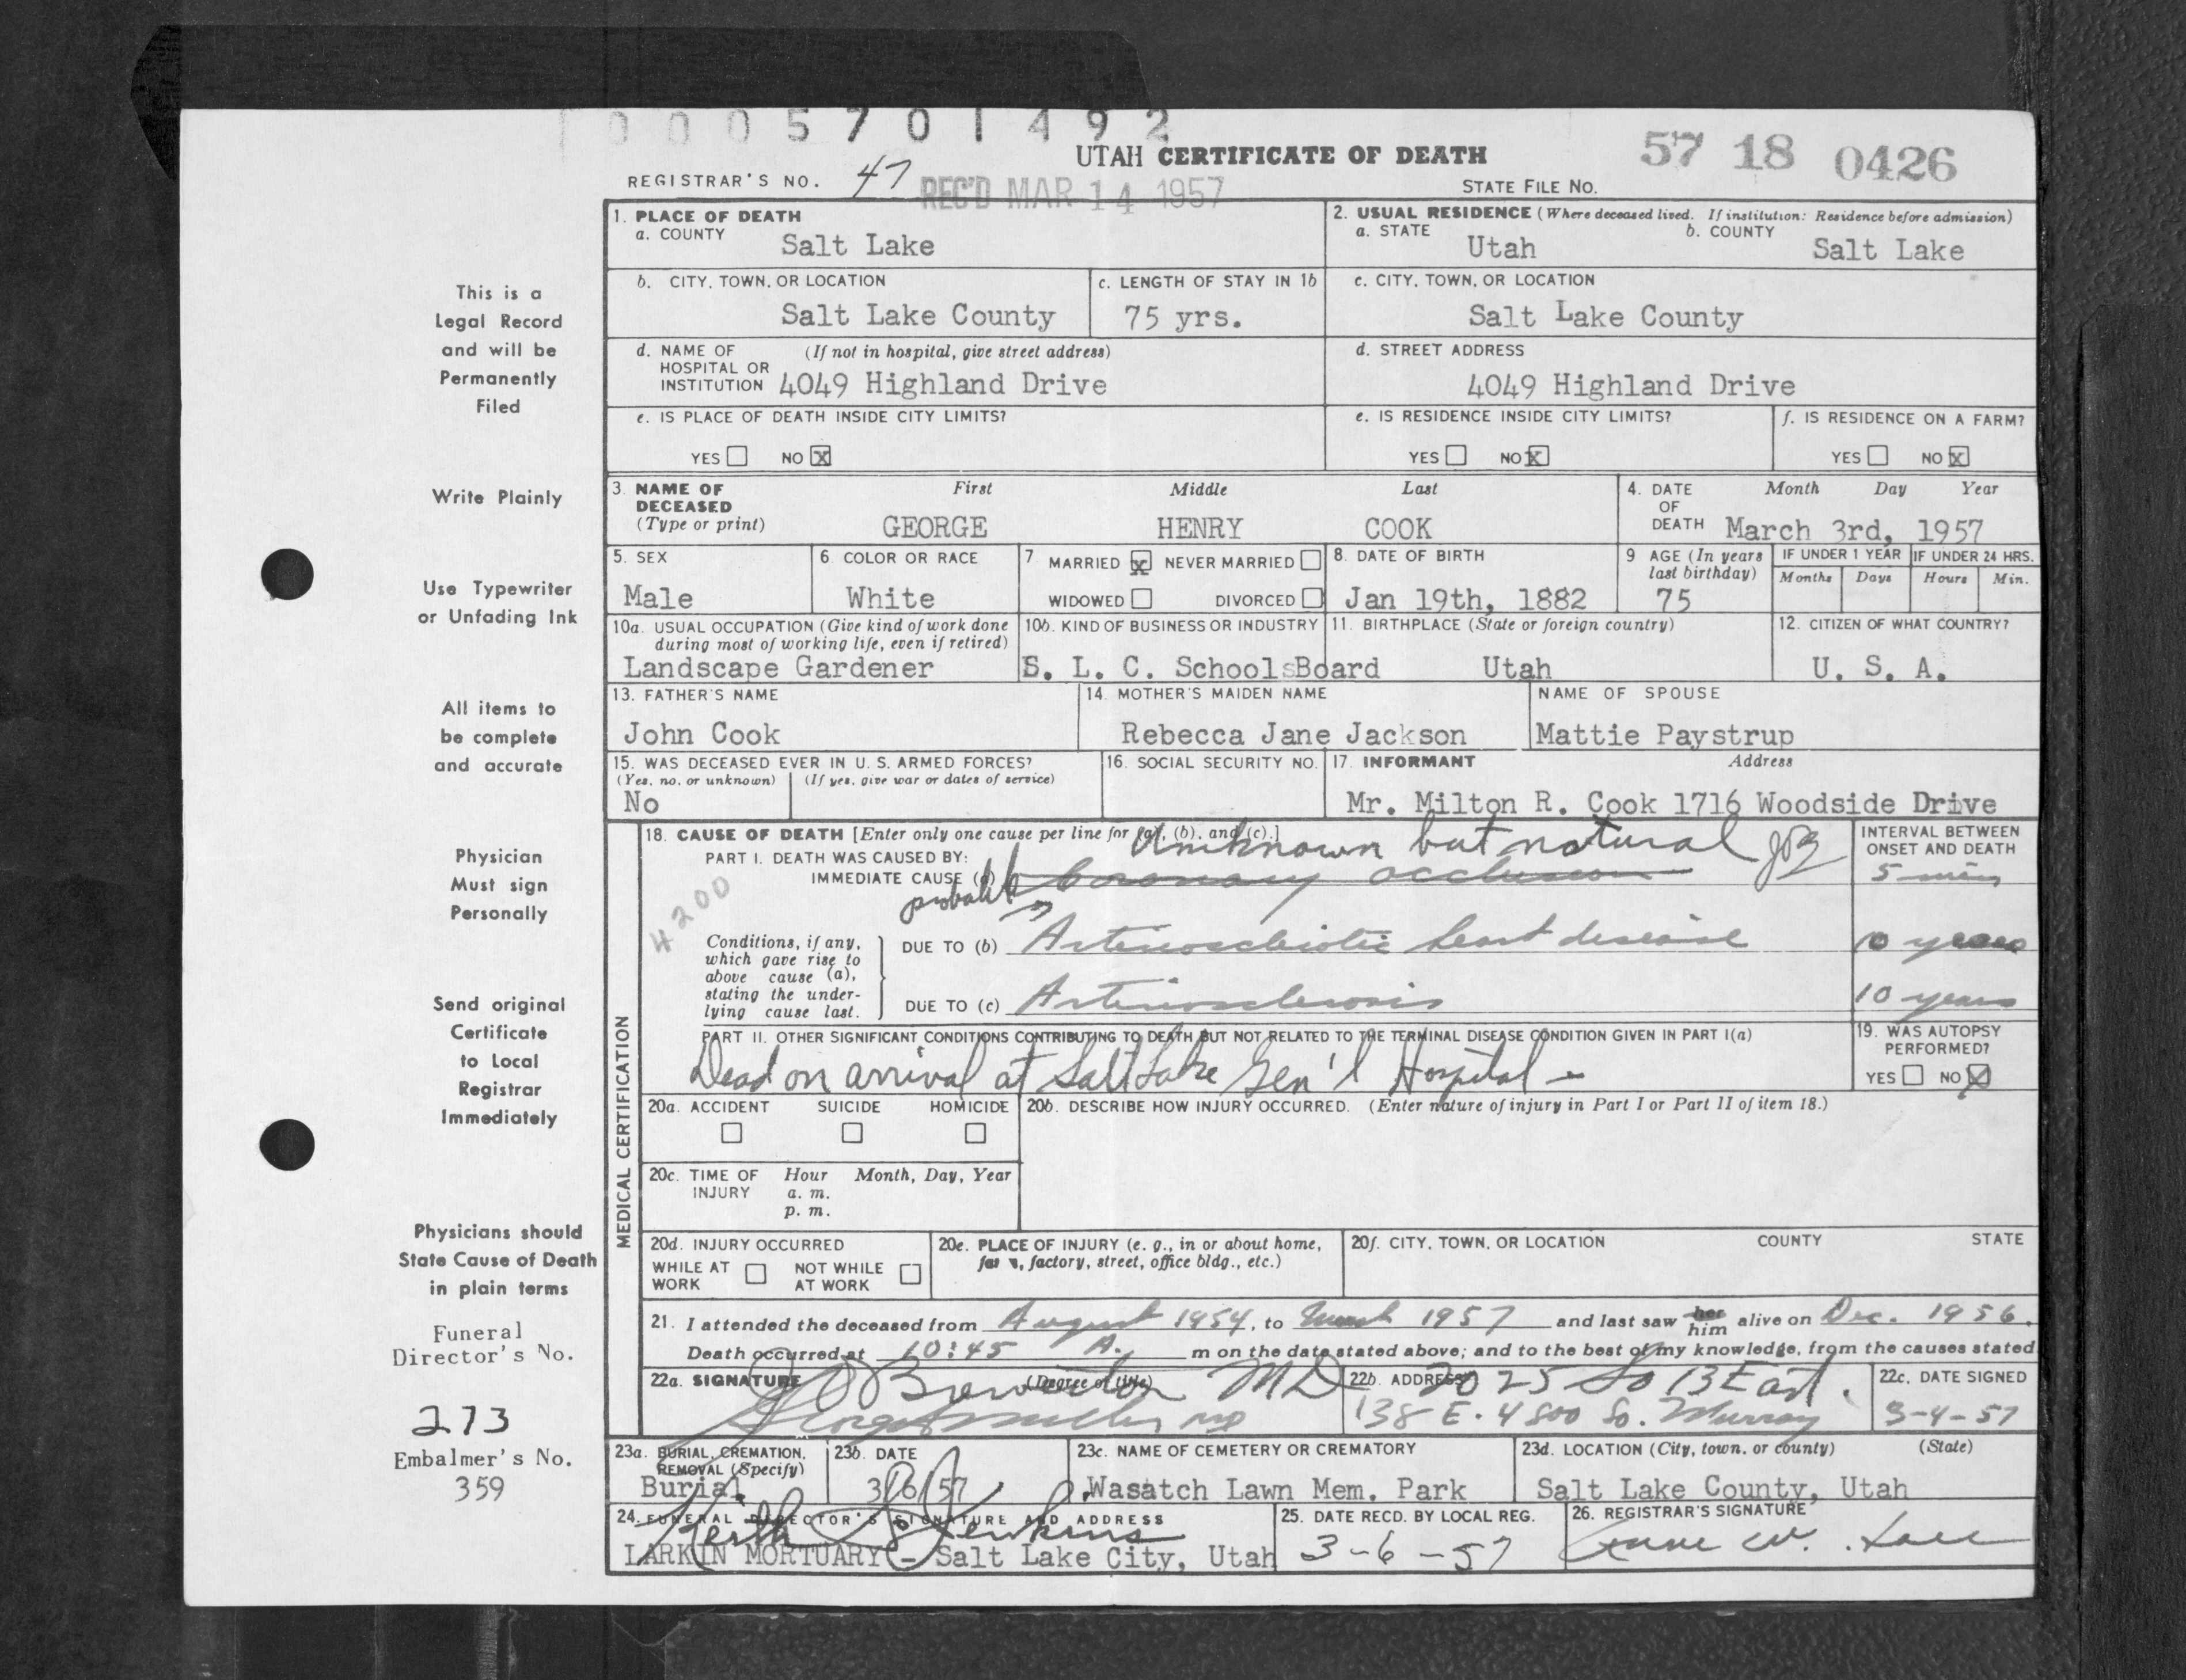 0005701492
UTAH CERTIFICATE OF DEATH
57 18 0426
REGISTRAR'S NO. 47
REC'D MAR 14 1957
STATE FILE NO.
This is a
Legal Record
and will be
Permanently
Filed
Write Plainly
Use Typewriter
or Unfading Ink
All items to
be complete
and accurate
Physician
Must sign
Personally
Send original
Certificate
to Local
Registrar
Immediately
Physicians should
State Cause of Death
in plain terms
Funeral
Director's No.
273
Embalmer's No.
359
1. PLACE OF DEATH
a. COUNTY Salt Lake
2. USUAL RESIDENCE (Where deceased lived. If institution: Residence before admission)
a. STATE Utah b. COUNTY Salt Lake
b. CITY, TOWN, OR LOCATION
Salt Lake County
c. LENGTH OF STAY IN 1b
75 yrs.
c. CITY, TOWN, OR LOCATION
Salt Lake County
d. NAME OF (If not in hospital, give street address)
HOSPITAL OR
INSTITUTION 4049 Highland Drive
d. STREET ADDRESS
4049 Highland Drive
e. IS PLACE OF DEATH INSIDE CITY LIMITS?
YES NO X
e. IS RESIDENCE INSIDE CITY LIMITS?
YES NO X
f. IS RESIDENCE ON A FARM?
YES NO X
3. NAME OF DECEASED
(Type or print)
First Middle Last
GEORGE HENRY COOK
4. DATE OF DEATH
Month Day Year
March 3rd, 1957
5. SEX
Male
6. COLOR OR RACE
White
7 MARRIED X NEVER MARRIED
WIDOWED DIVORCED
8. DATE OF BIRTH
Jan 19th, 1882
9 AGE (In years
last birthday)
75
IF UNDER 1 YEAR
Months Days
IF UNDER 24 HRS.
Hours Min.
10a. USUAL OCCUPATION (Give kind of work done
during most of working life, even if retired)
Landscape Gardener
10b. KIND OF BUSINESS OR INDUSTRY
S. L. C. SchoolsBoard
11. BIRTHPLACE (State or foreign country)
Utah
12. CITIZEN OF WHAT COUNTRY?
U. S. A.
13. FATHER'S NAME
John Cook
14. MOTHER'S MAIDEN NAME
Rebecca Jane Jackson
NAME OF SPOUSE
Mattie Paystrup
15. WAS DECEASED EVER IN U. S. ARMED FORCES?
(Yes, no, or unknown) (If yes, give war or dates of service)
No
16. SOCIAL SECURITY NO.
17. INFORMANT Address
Mr. Milton R. Cook 1716 Woodside Drive
MEDICAL CERTIFICATION
18. CAUSE OF DEATH [Enter only one cause per line for (a), (b), and (c).]
Unknown but natural
PART I. DEATH WAS CAUSED BY:
IMMEDIATE CAUSE (a) Coronary occlusion
probable
4200
INTERVAL BETWEEN
ONSET AND DEATH
5 min
Conditions, if any,
which gave rise to
above cause (a),
stating the under-
lying cause last.
DUE TO (b) Arteriosclerotic heart disease 10 years
DUE TO (c) Arteriosclerosis 10 years
PART II. OTHER SIGNIFICANT CONDITIONS CONTRIBUTING TO DEATH BUT NOT RELATED TO THE TERMINAL DISEASE CONDITION GIVEN IN PART I(a)
Dead on arrival at Salt Lake Gen'l Hospital -
19. WAS AUTOPSY
PERFORMED?
YES NO X
20a. ACCIDENT SUICIDE HOMICIDE
20b. DESCRIBE HOW INJURY OCCURRED. (Enter nature of injury in Part I or Part II of item 18.)
20c. TIME OF INJURY
Hour Month, Day, Year
a. m.
p. m.
20d. INJURY OCCURRED
WHILE AT WORK NOT WHILE AT WORK
20e. PLACE OF INJURY (e. g., in or about home,
farm, factory, street, office bldg., etc.)
20f. CITY, TOWN, OR LOCATION COUNTY STATE
21. I attended the deceased from August 1954, to March 1957 and last saw her him alive on Dec. 1956.
Death occurred at 10:45 A. m on the date stated above; and to the best of my knowledge, from the causes stated
22a. SIGNATURE (Degree or title)
Brewerton MD
MD
22b. ADDRESS
2025 So 13 East.
138 E. 4800 So. Murray
22c. DATE SIGNED
3-4-57
23a. BURIAL, CREMATION,
REMOVAL (Specify)
Burial
23b. DATE
3/6/57
23c. NAME OF CEMETERY OR CREMATORY
Wasatch Lawn Mem. Park
23d. LOCATION (City, town, or county) (State)
Salt Lake County, Utah
24. FUNERAL DIRECTOR'S SIGNATURE AND ADDRESS
Keith Jenkins
LARKIN MORTUARY - Salt Lake City, Utah
25. DATE RECD. BY LOCAL REG.
3-6-57
26. REGISTRAR'S SIGNATURE